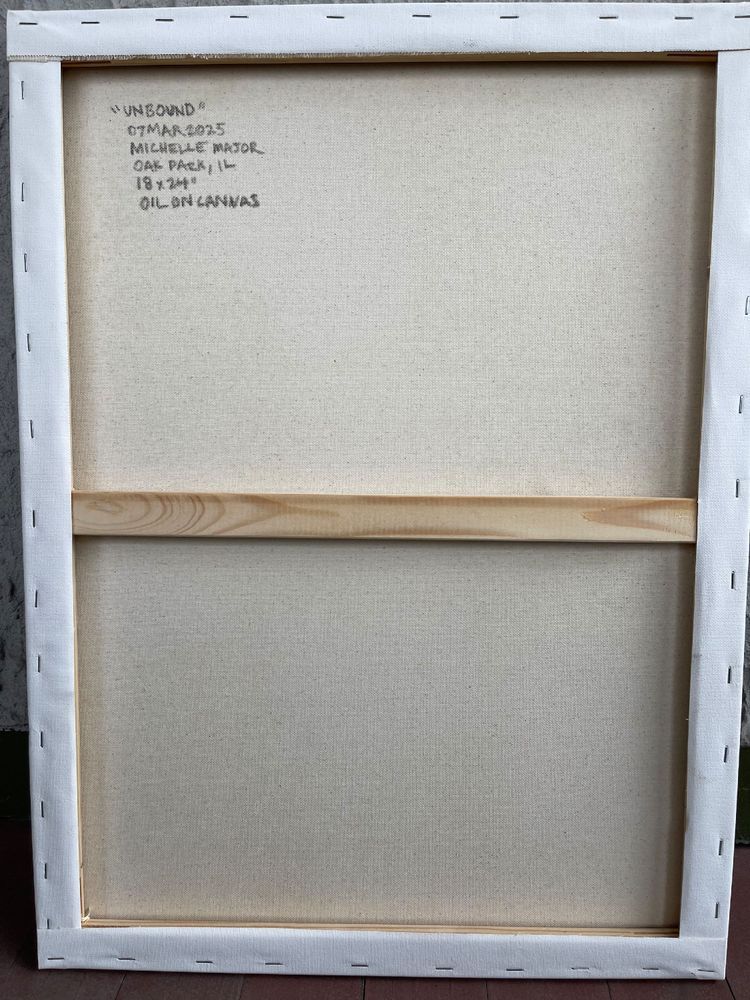 "UNBOUND"
07MAR2025
MICHELLE MAJOR
OAK PARK, IL
18 x 24"
OIL ON CANVAS